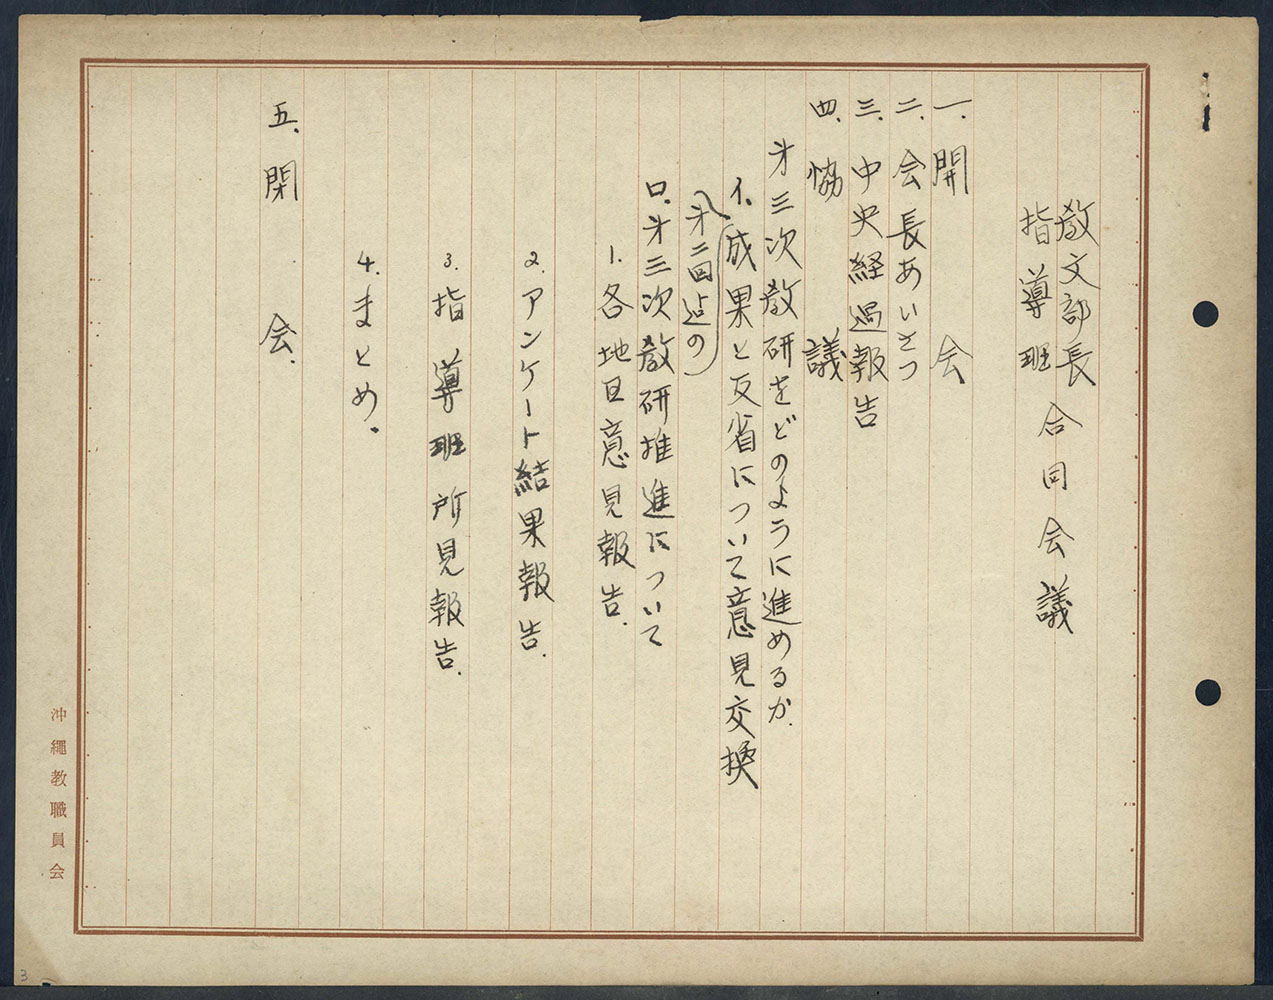 教文部長
指導班
合同会議
一、開会
二、会長あいさつ
三、中央経過報告
四、協議
才三次教研をどのように進めるか.
イ、成果と反省について意見交換
(才二回迄の)
ロ、才三次教研推進について
1. 各地区意見報告.
2. アンケート結果報告.
3. 指導班所見報告.
4. まとめ.
五、閉会.
沖縄教職員会
3